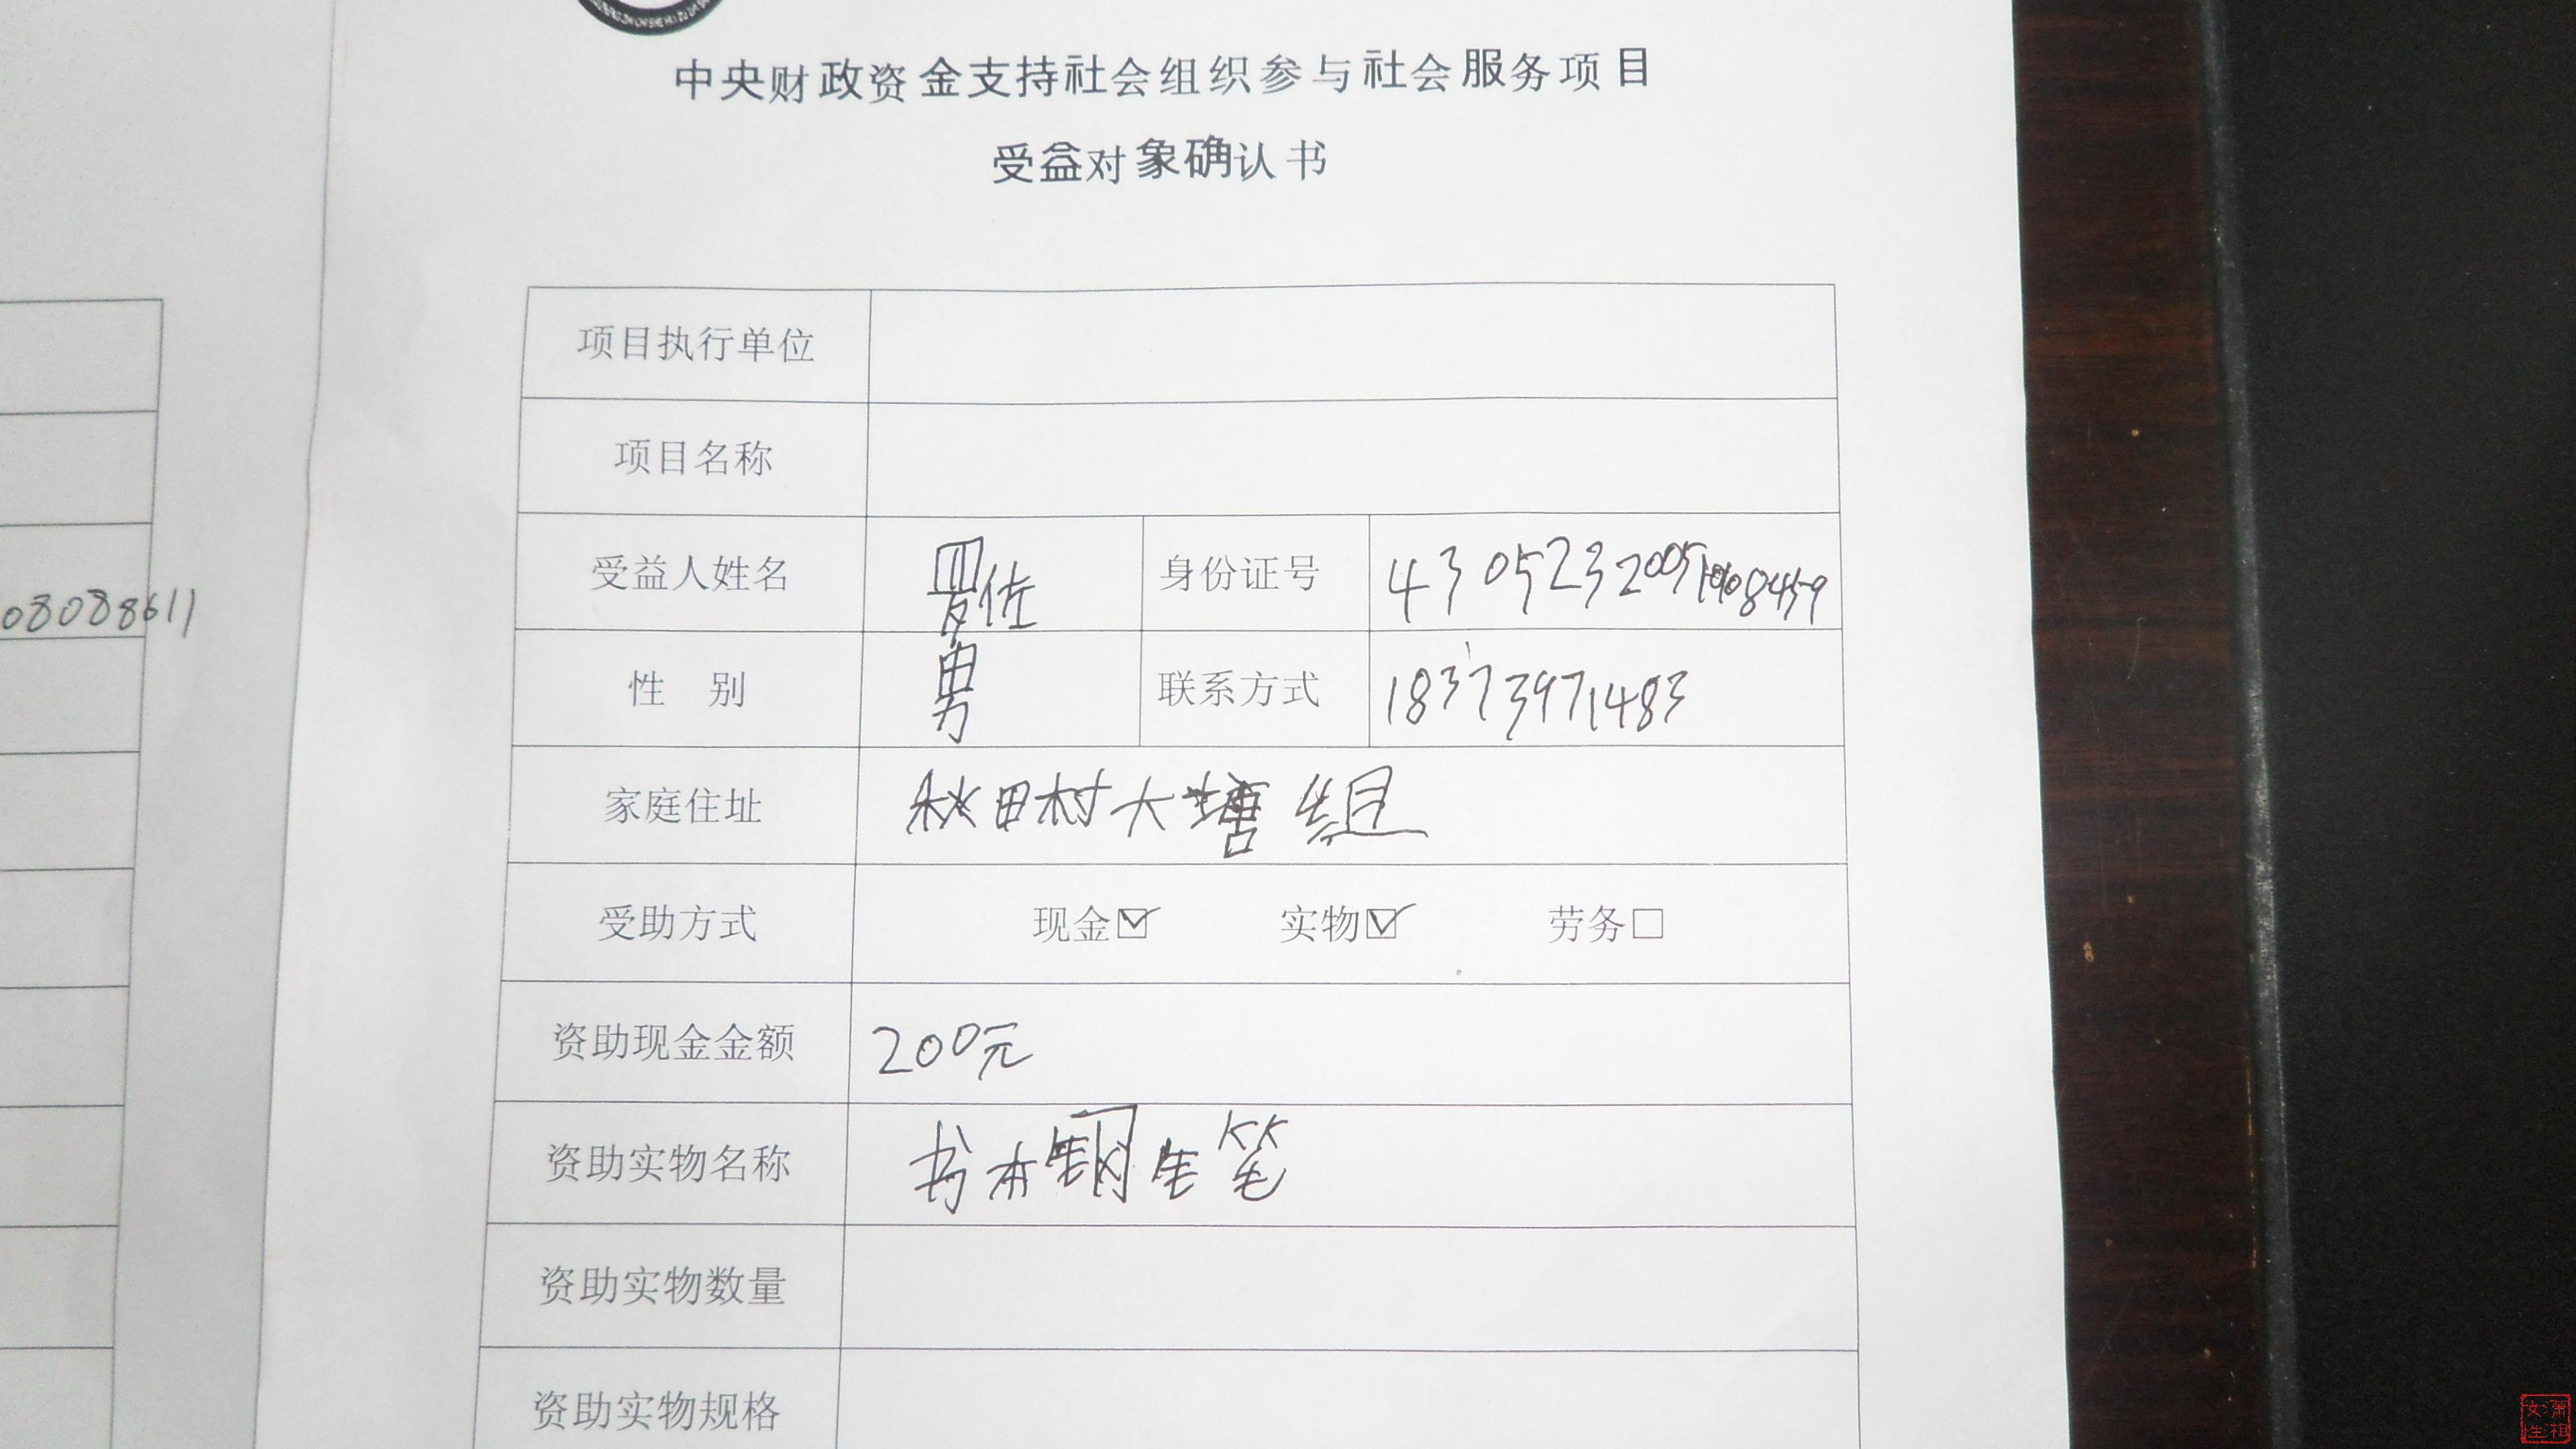 中央财政资金支持社会组织参与社会服务项目
受益对象确认书
项目执行单位
项目名称
受益人姓名 罗佐 身份证号
08088611
性 别 男 联系方式 18373971483
家庭住址 秋田村大塘组
受助方式 现金☑ 实物☑ 劳务□
资助现金金额 200元
资助实物名称 书本钢笔
资助实物数量
资助实物规格
潇湘
女性